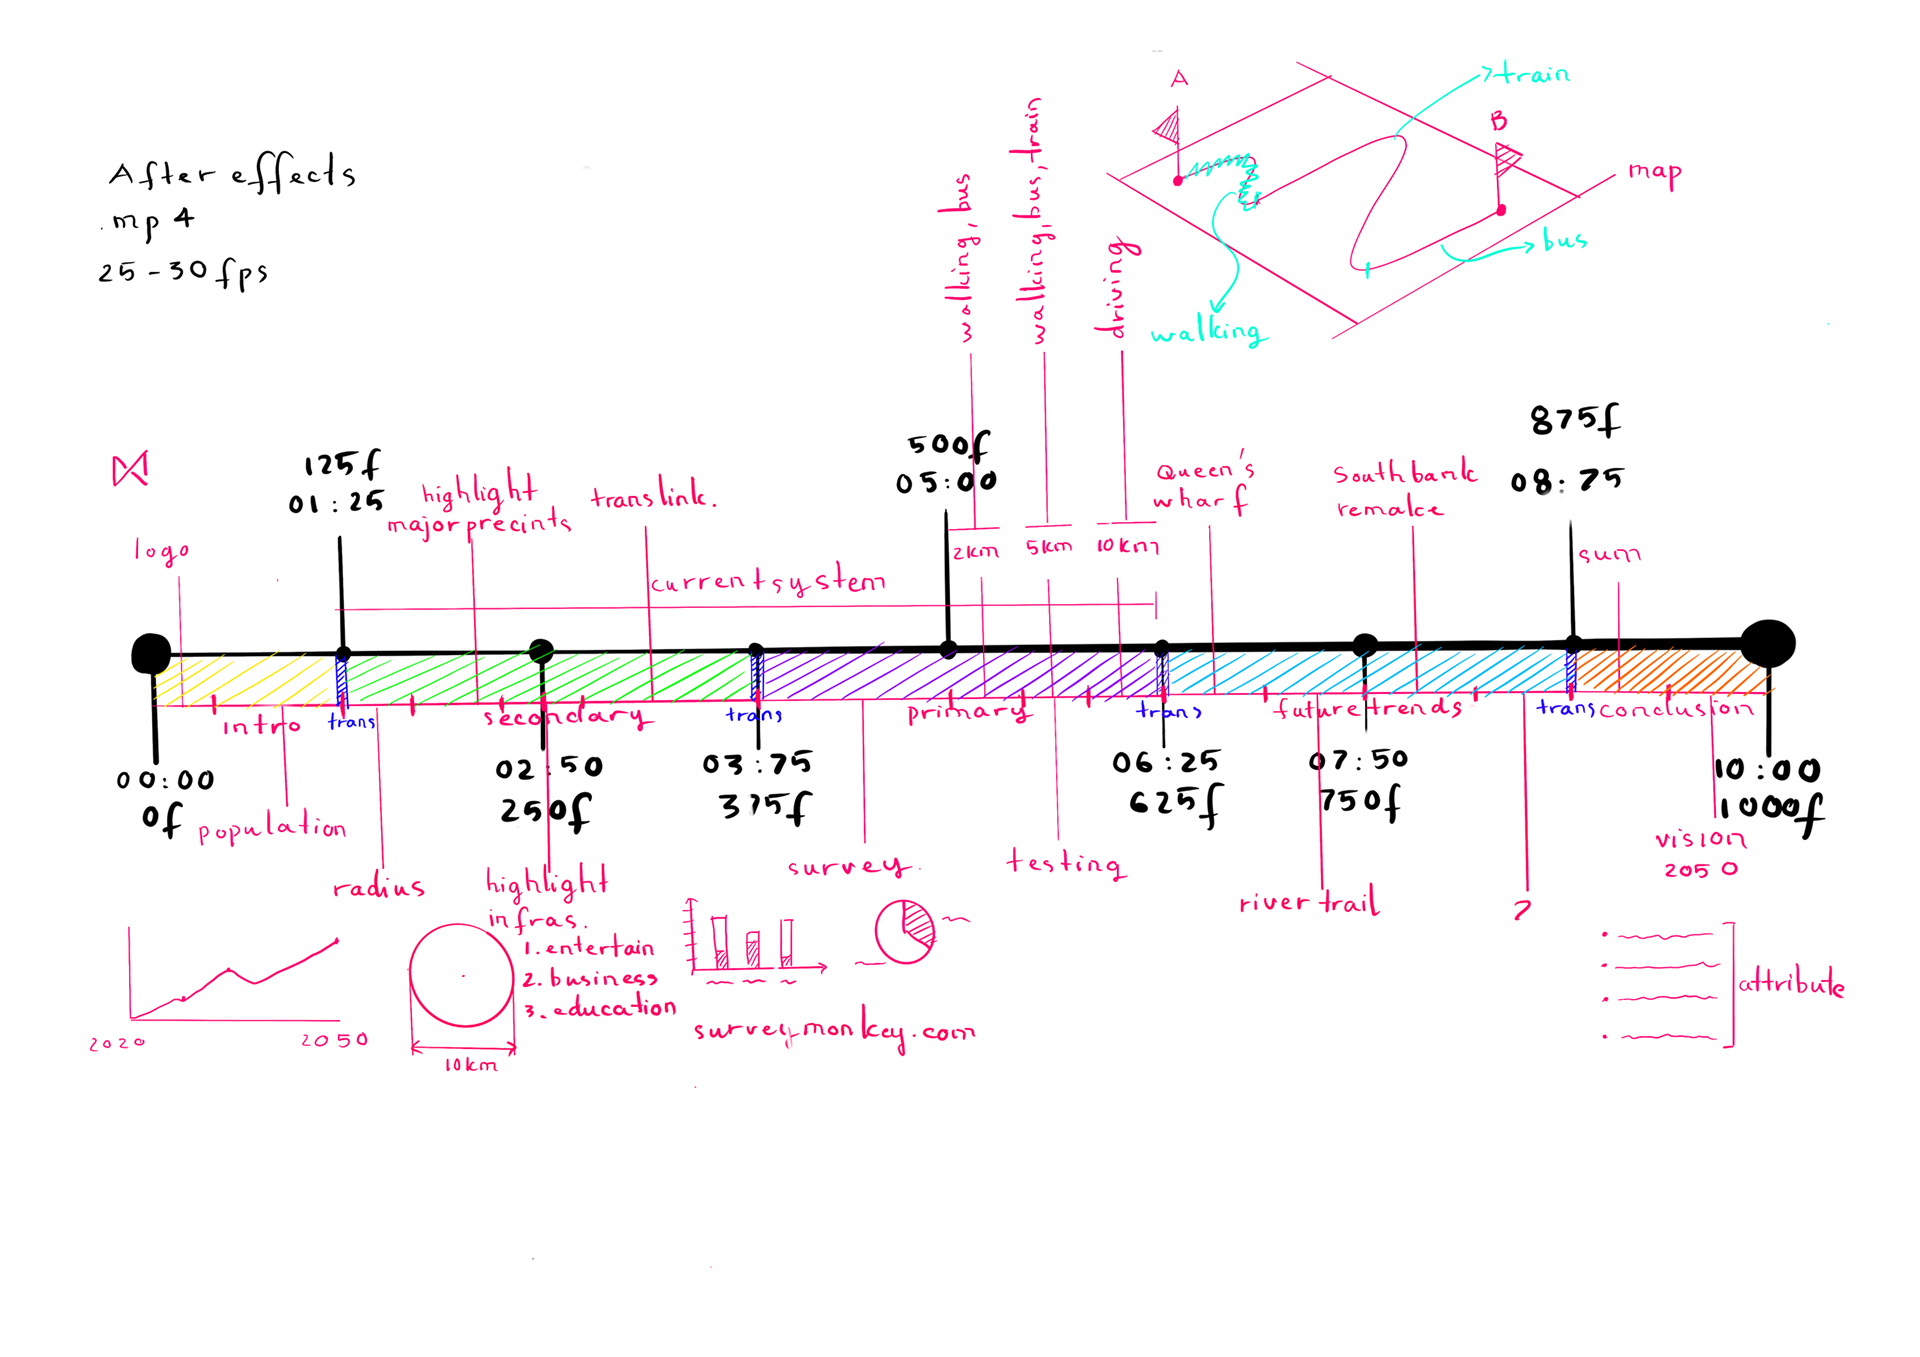 After effects
.mp4
25-30fps
A
train
B
map
bus
walking
walking, bus
walking, bus, train
driving
125f
01:25
highlight
major precints
translink.
500f
05:00
Queen's
wharf
Southbank
remake
875f
08:75
logo
current system
2km
5km
10km
sum
intro
trans
secondary
trans
primary
trans
future trends
trans
conclusion
00:00
0f
02:50
250f
03:75
375f
06:25
625f
07:50
750f
10:00
1000f
population
radius
highlight
infras.
1. entertain
2. business
3. education
survey.
testing
river trail
?
vision
2050
2020
2050
10km
surveymonkey.com
attribute